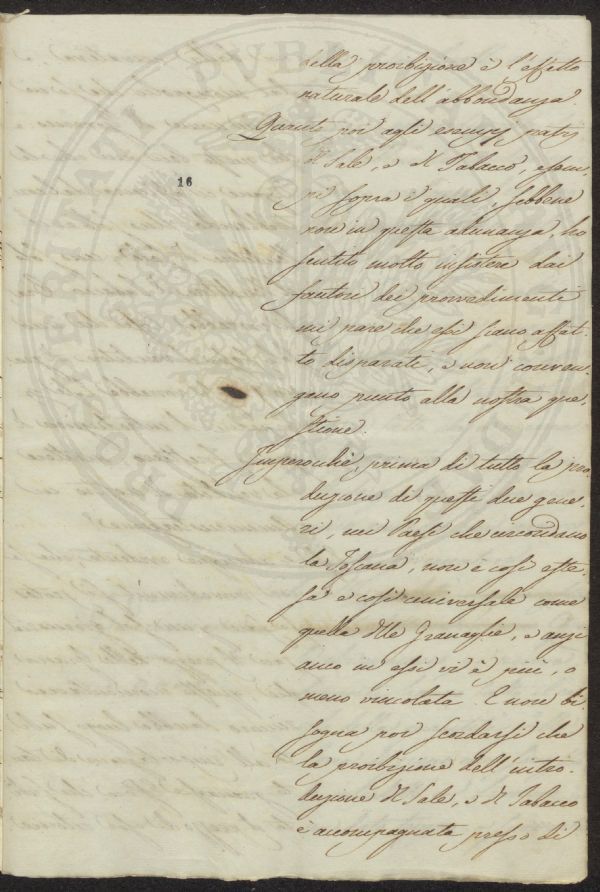 della proibizione è l'effetto
naturale dell'abbondanza.
Quanto poi agli esempj
del Sale, e del Tabacco, esem,
pi sopra i quali, sebbene
non in questa adunanza, ho
sentito molto insistere dai
fautori dei provvedimenti
mi pare che essi siano affat,
to disparati, e non conven,
gano punto alla nostra que,
stione.
16
Imperocchè, prima di tutto la pro
duzione di questi due gene,
ri, nei Paesi che circondano
la Toscana, non è così este,
sa e così universale come
quella delle Granaglie, e anzi
anco in essi vi è più, o
meno vincolata. E non bi
sogna poi scordarsi che
la proibizione dell'intro,
duzione del Sale, e del Tabacco
è accompagnata presso di
PUBLI